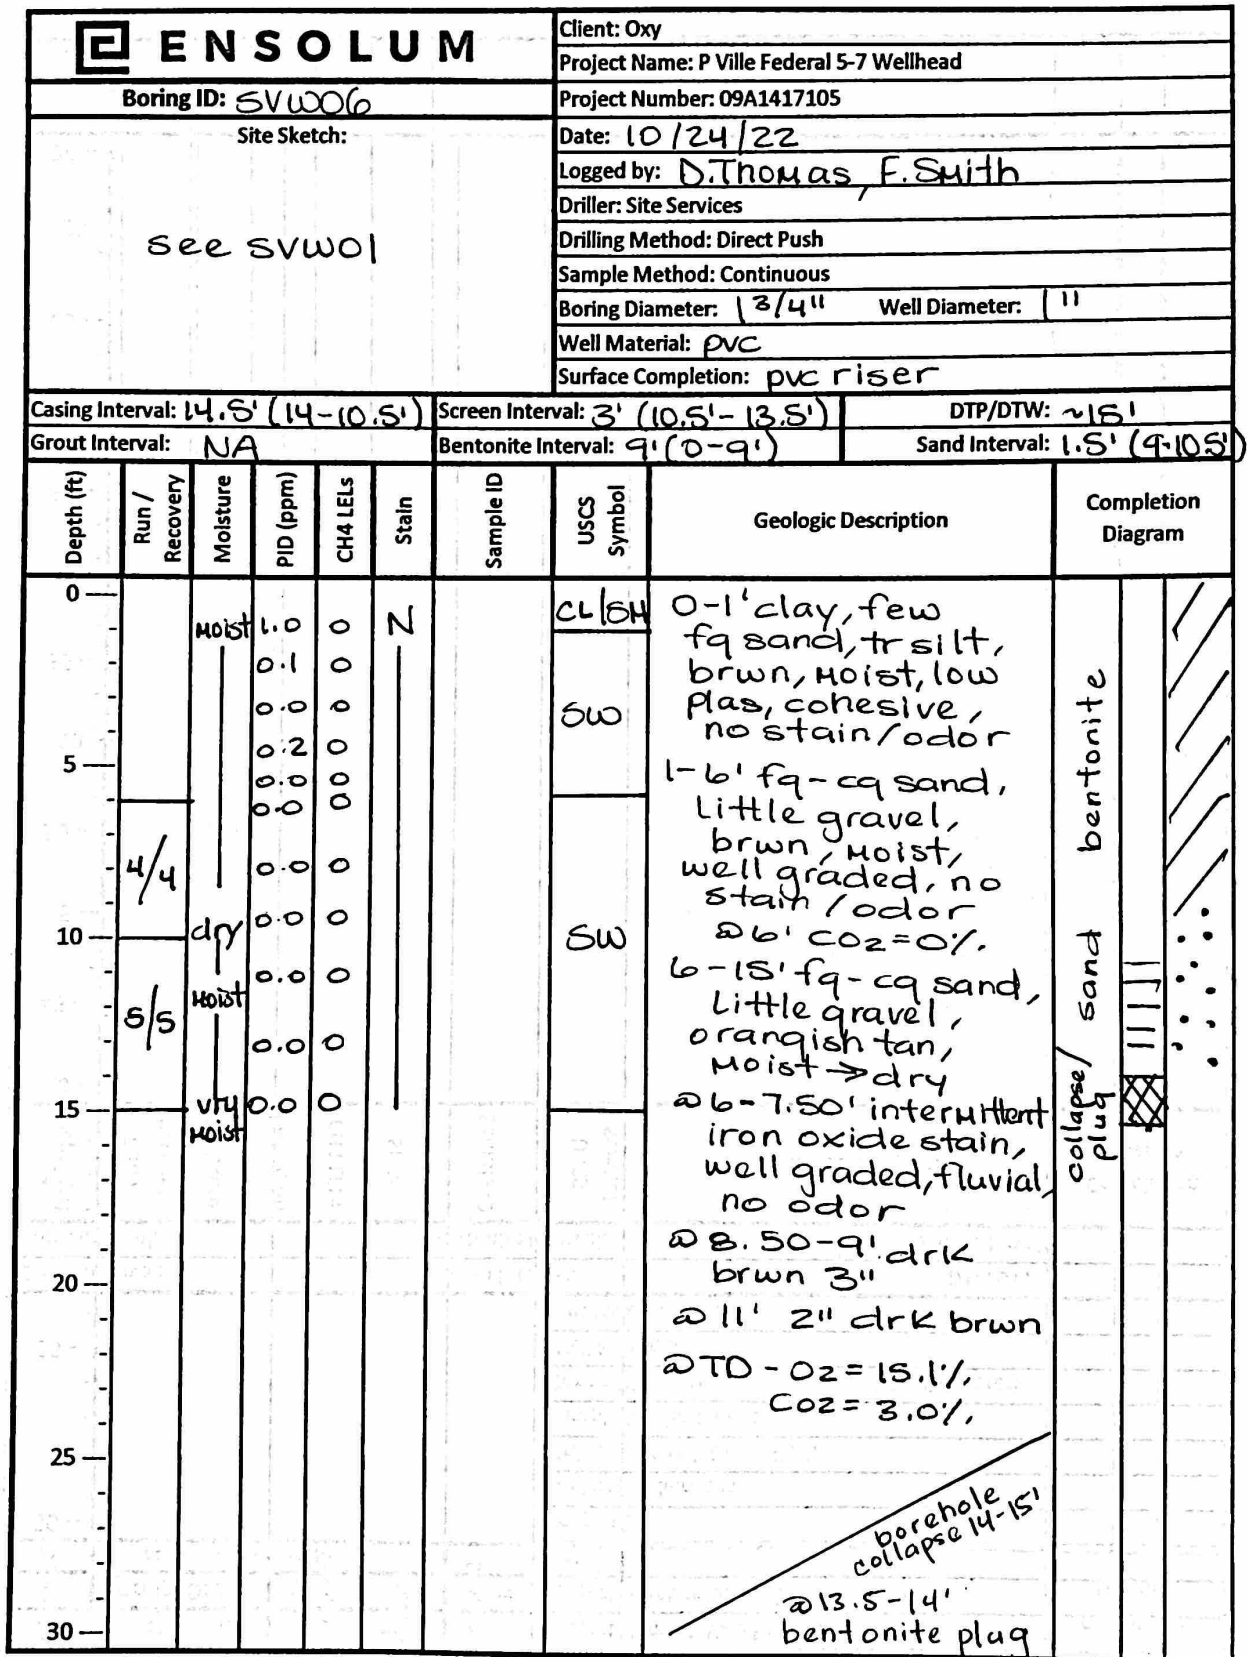 ENSOLUM
Boring ID: SVW06
Site Sketch:
see SVW01
Client: Oxy
Project Name: P Ville Federal 5-7 Wellhead
Project Number: 09A1417105
Date: 10/24/22
Logged by: D.Thomas, F.Smith
Driller: Site Services
Drilling Method: Direct Push
Sample Method: Continuous
Boring Diameter: 1 3/4" Well Diameter: 1"
Well Material: PVC
Surface Completion: pvc riser
Casing Interval: 14.5' (14-10.5') Screen Interval: 3' (10.5'-13.5') DTP/DTW: ~15'
Grout Interval: NA Bentonite Interval: 9' (0-9') Sand Interval: 1.5' (9-10.5')
Depth (ft)
Run / Recovery
Moisture
PID (ppm)
CH4 LELs
Stain
Sample ID
USCS Symbol
Geologic Description
Completion Diagram
0
5
10
15
20
25
30
4/4
5/5
Moist
dry
Moist
vry
Moist
1.0 0
0.1 0
0.0 0
0.2 0
0.0 0
0.0 0
0.0 0
0.0 0
0.0 0
0.0 0
0.0 0
N
CL/SM
SW
SW
0-1' clay, few
fg sand, tr silt,
brwn, Moist, low
plas, cohesive,
no stain/odor
1-6' fg-cg sand,
Little gravel,
brwn, Moist,
well graded, no
stain/odor
@6' CO2=0%
6-15' fg-cg sand,
Little gravel,
orangish tan,
Moist→dry
@6-7.50' intermittent
iron oxide stain,
well graded, fluvial,
no odor
@8.50-9' drk
brwn 3"
@11' 2" drk brwn
@TD - O2=15.1%,
CO2=3.0%,
borehole
collapse 14-15'
@13.5-14'
bentonite plug
bentonite
sand
collapse/
plug